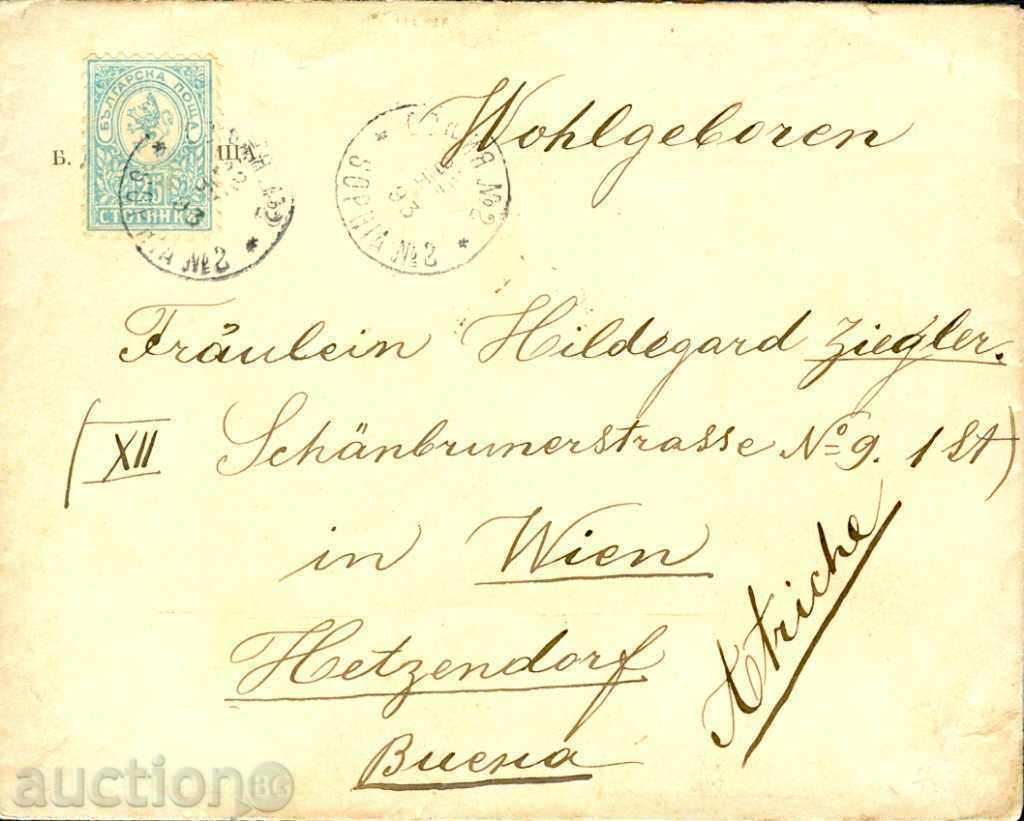 БЪЛГАРСКА ПОЩА
25
СТОТИНКИ
Б.
СОФИЯ №2
SOPHIA №2
93
Wohlgeboren
Fräulein Hildegard Ziegler.
(XII Schänbrunerstrasse № 9. 1 St)
in Wien
Hetzendorf
Виена
Atriche
auction BG